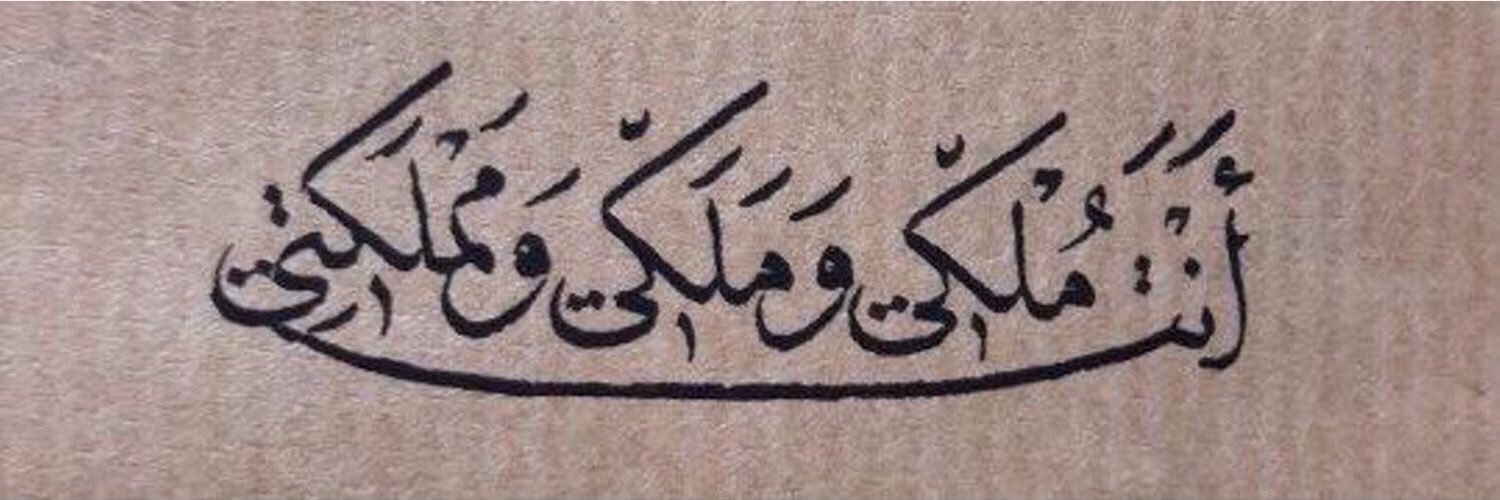 أَنْتَ مُلْكِي وَمَلَكِي وَمَمْلَكَتِي